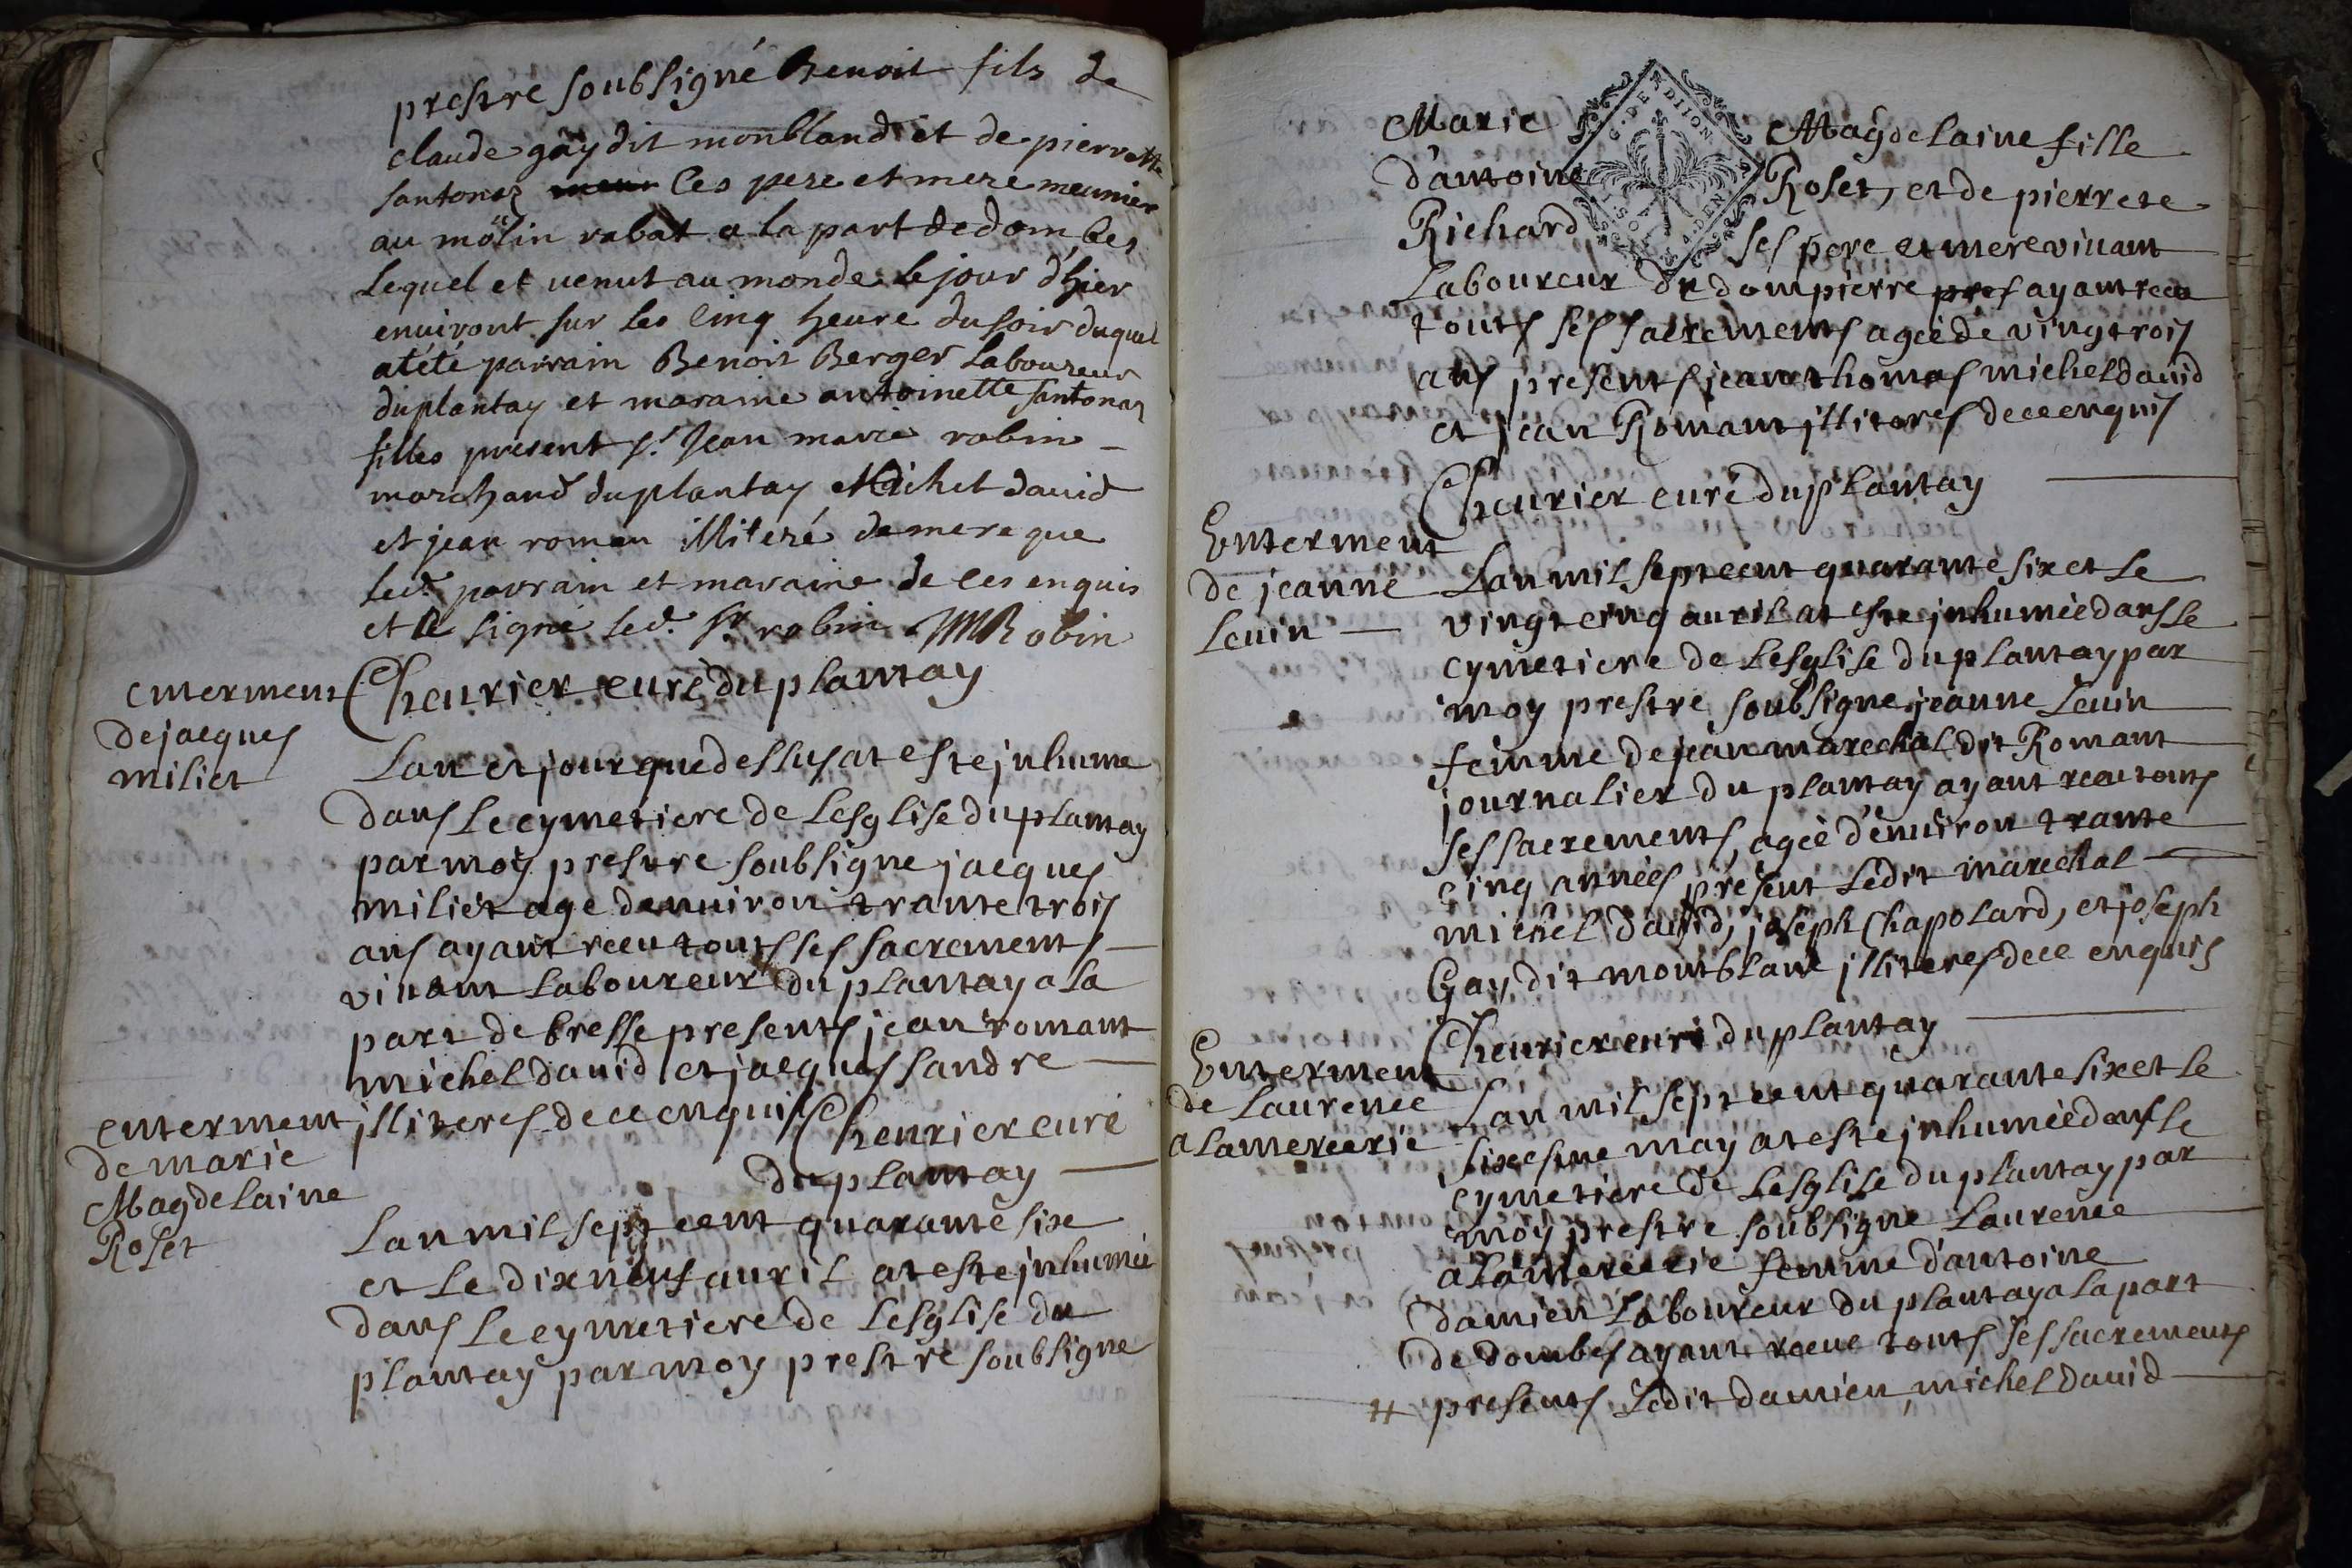 prestre soubsigné Benoit fils de
claude gäy dit monbland et de pierrette
santonas ces pere et mere meunier
au molin rabat a la part de dombes
lequel et venut au monde le jour d'hier
enuiront sur les cinq heure du soir duquel
at été parrain Benoit Berger laboureur
du plantay et maraine antoinette santonas
filles present sr. Jean marie robin
marchand du plantay Michel david
et jean roman illiteré de mere que
led. parrain et maraine de ces enquis
et a signé led. sr robin JM Robin
Cheurier curé du plantay
enterment
de jacques
miliet
Lan et jour que dessus at este jnhume
dans le cymetiere de Lesglise du plantay
par moy prestre soubsigne jacques
miliet age denuiron trante trois
ans ayant receu touts ses sacrements
viuant laboureur du plantay a la
part de bresse presents jean romant
michel dauid et jacques sandre
illiteres de ce enquis Cheurier curé
du plantay
enterment
de marie
Magdelaine
Roset
Lan mil sept cent quarante six
et le dix neuf auril at este jnhumée
dans le cymetiere de Lesglise du
plantay par moy prestre soubsigne
Marie Magdelaine fille
d'antoine Roset, et de pierrete
Richard ses pere et mere viuant
Laboureur de dompierre ayant receu
touts ses sacrements agée de vingt trois
ans presents jean thomas michel dauid
et jean Romant jlliteres de ce enquis
Cheurier curé du plantay
G. DE DIJON
SOLS 4. DEN
Enterment
de jeanne
Leuin
Lan mil sept cent quarante six et le
vingt cinq auril at este jnhumée dans le
cymetiere de Lesglise du plantay par
moy prestre soubsigne jeanne Leuin
femme de jean marechal dit Romant
journalier du plantay ayant receu touts
ses sacrements, agée d'enuiron trante
cinq années present Ledit marechal
michel dauid, joseph Chapolard, et joseph
Gay dit montblanc jlliteres de ce enquis
Cheurier curé du plantay
Enterment
de Laurence
alamercerie
Lan mil sept cent quarante six et le
sixesme may at este jnhumée dans le
cymetiere de Lesglise du plantay par
moy prestre soubsigne Laurence
alamercerie femme d'antoine
damien Laboureur du plantay a la part
de dombes ayant receue touts ses sacrements
presents Ledit damien, michel dauid